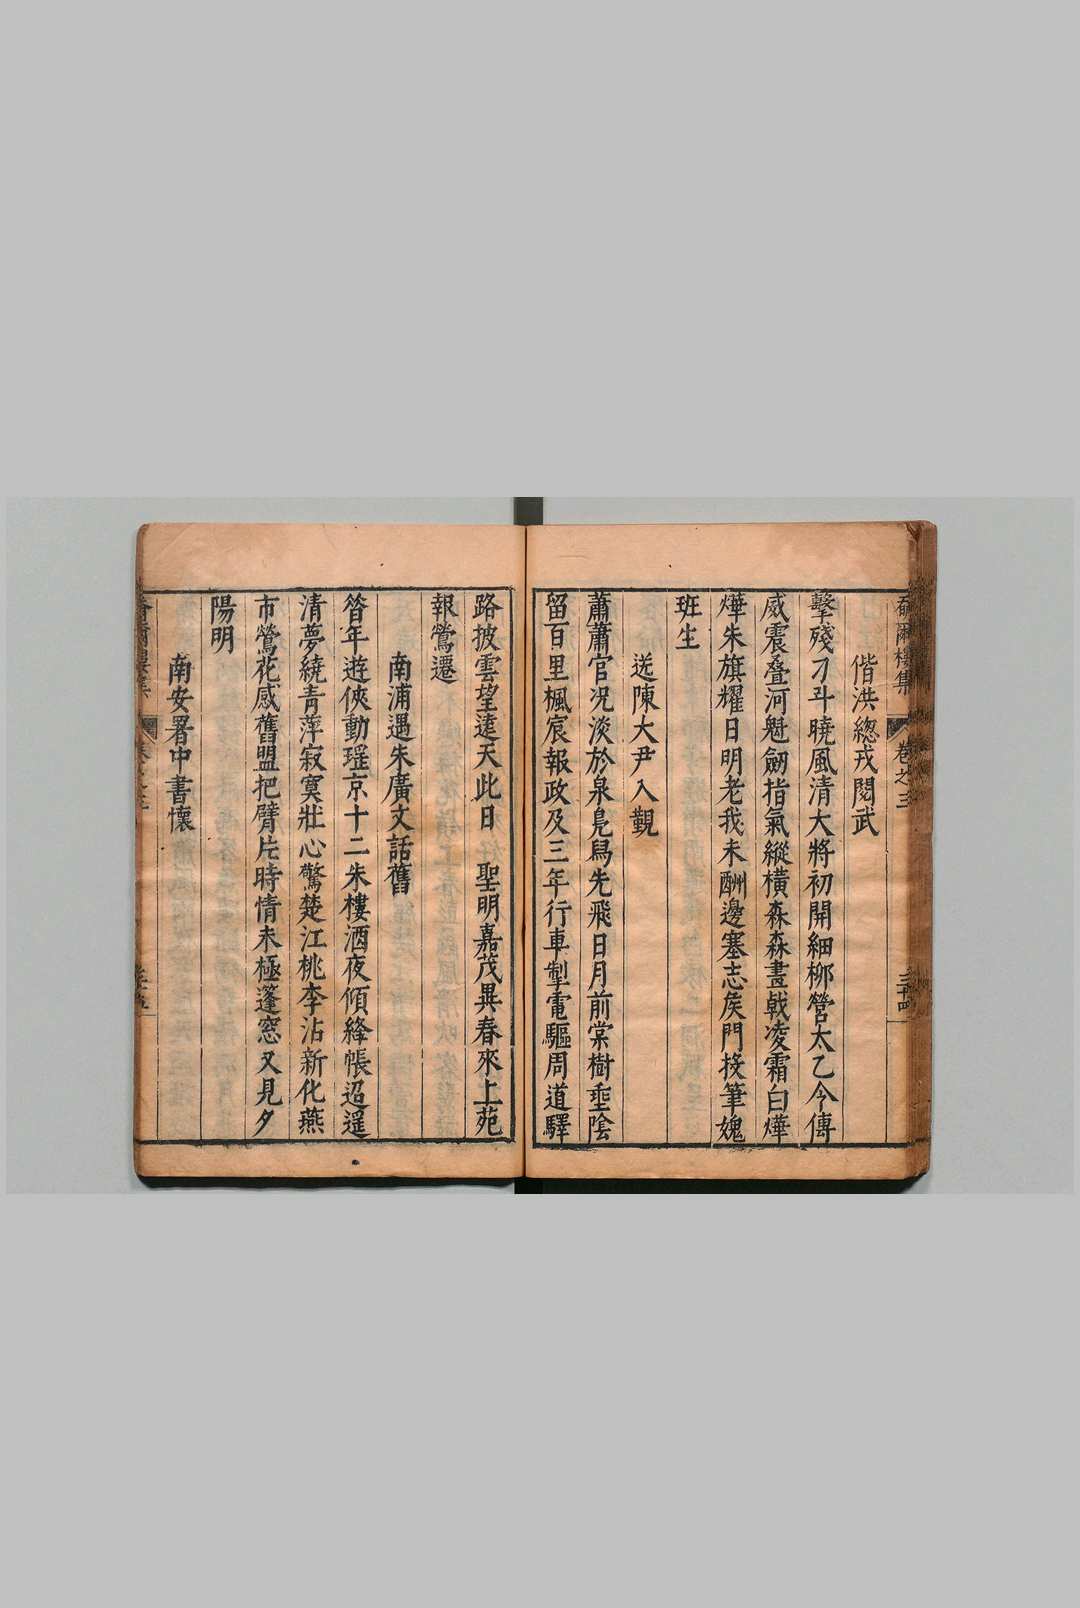 偕洪總戎閱武
擊殘刁斗曉風清大將初開細柳營太乙今傳
威震疊河魁劒指氣縱橫森森畫戟凌霜白燁
燁朱旗耀日明老我未酬邊塞志矦門投筆媿
班生
送陳大尹入覲
蕭蕭官况淡於泉鳧舄先飛日月前棠樹埀陰
留百里楓宸報政及三年行車掣電驅周道驛
路披雲望遠天此日 聖明嘉茂異春來上苑
報鶯遷
南浦遇朱廣文話舊
昔年遊俠動瑶京十二朱樓酒夜傾絳帳迢遥
清夢繞青萍寂寞壯心驚楚江桃李沾新化燕
市鶯花感舊盟把臂片時情未極篷窓又見夕
陽明
南安署中書懷
爾樓集
卷之三
三十四